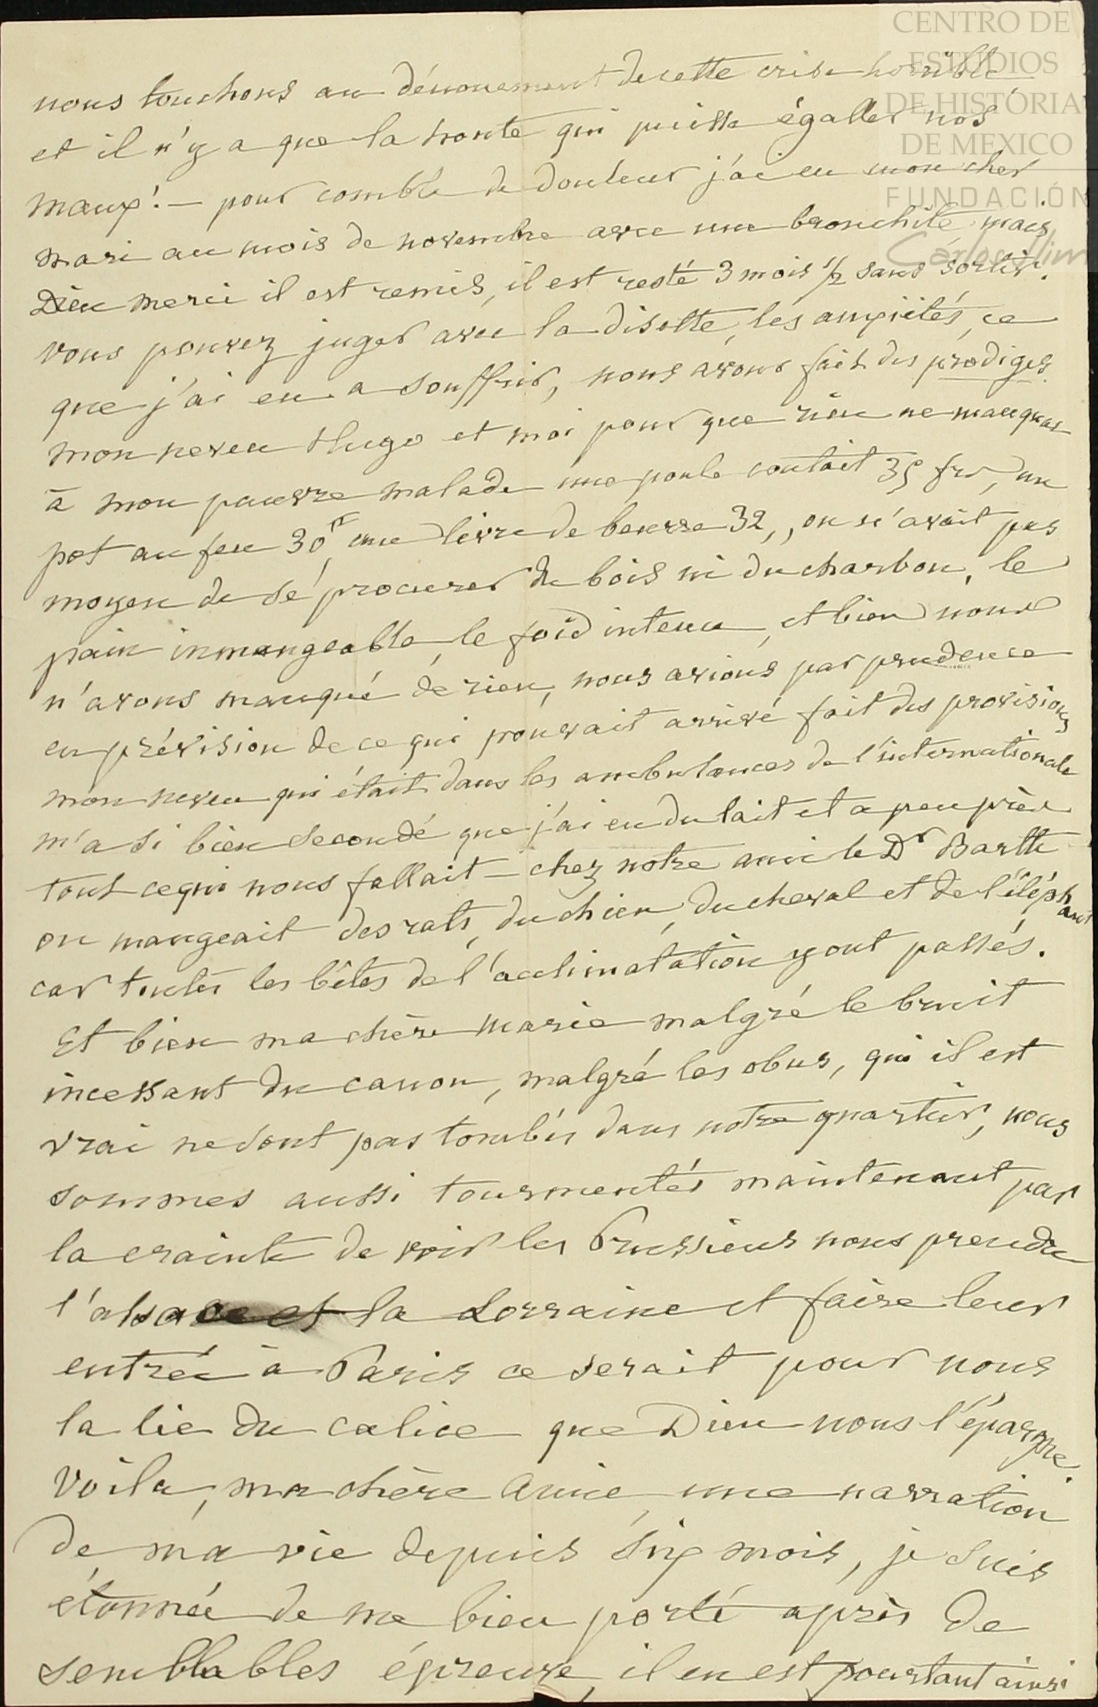 CENTRO DE
ESTUDIOS
DE HISTORIA
DE MEXICO
FUNDACIÓN
Carlos Slim
nous touchons au dénouement de cette crise horrible
et il n'y a que la honte qui puisse égaller nos
maux! — pour comble de douleur j'ai eu mon cher
mari au mois de novembre avec une bronchite mais
Dieu merci il est remis, il est resté 3 mois 1/2 sans sortir.
vous pouvez juger avec la disette, les anxiétés, ce
que j'ai eu a souffrir, nous avons fait des prodiges
mon neveu Hugo et moi pour que rien ne manquat
à mon pauvre malade une poule coutait 35 frs, un
pot au feu 30 fr, une livre de beurre 32,, on n'avait pas
moyen de sé procurer du bois ni du charbon, le
pain inmangeable, le foid intense, et bien nous
n'avons manqué de rien, nous avions par prudence
en prévision de ce qui pouvait arrivé fait des provisions
mon neveu qui était dans les ambulances de l'internationale
m'a si bien secondé que j'ai eu du lait et a peu près
tout ce qui nous fallait — chez notre ami le Dr Barth
on mangeait des rats, du chien, du cheval et de l'éléphant
car toutes les bêtes de l'acclimatation y ont passés.
Et bien ma chère Marie malgré le bruit
incessant du canon, malgré les obus, qui il est
vrai ne sont pas tombés dans notre quartier, nous
sommes aussi tourmentés maintenant par
la crainte de voir les Prussiens nous prendre
l'alsace et la Lorraine et faire leur
entrée à Paris ce serait pour nous
la lie du calice que Dieu nous l'épargne.
Voila, ma chère amie, une narration
de ma vie depuis six mois, je suis
étonnée de me bien porté après de
semblables épreuve, il en est pourtant ainsi